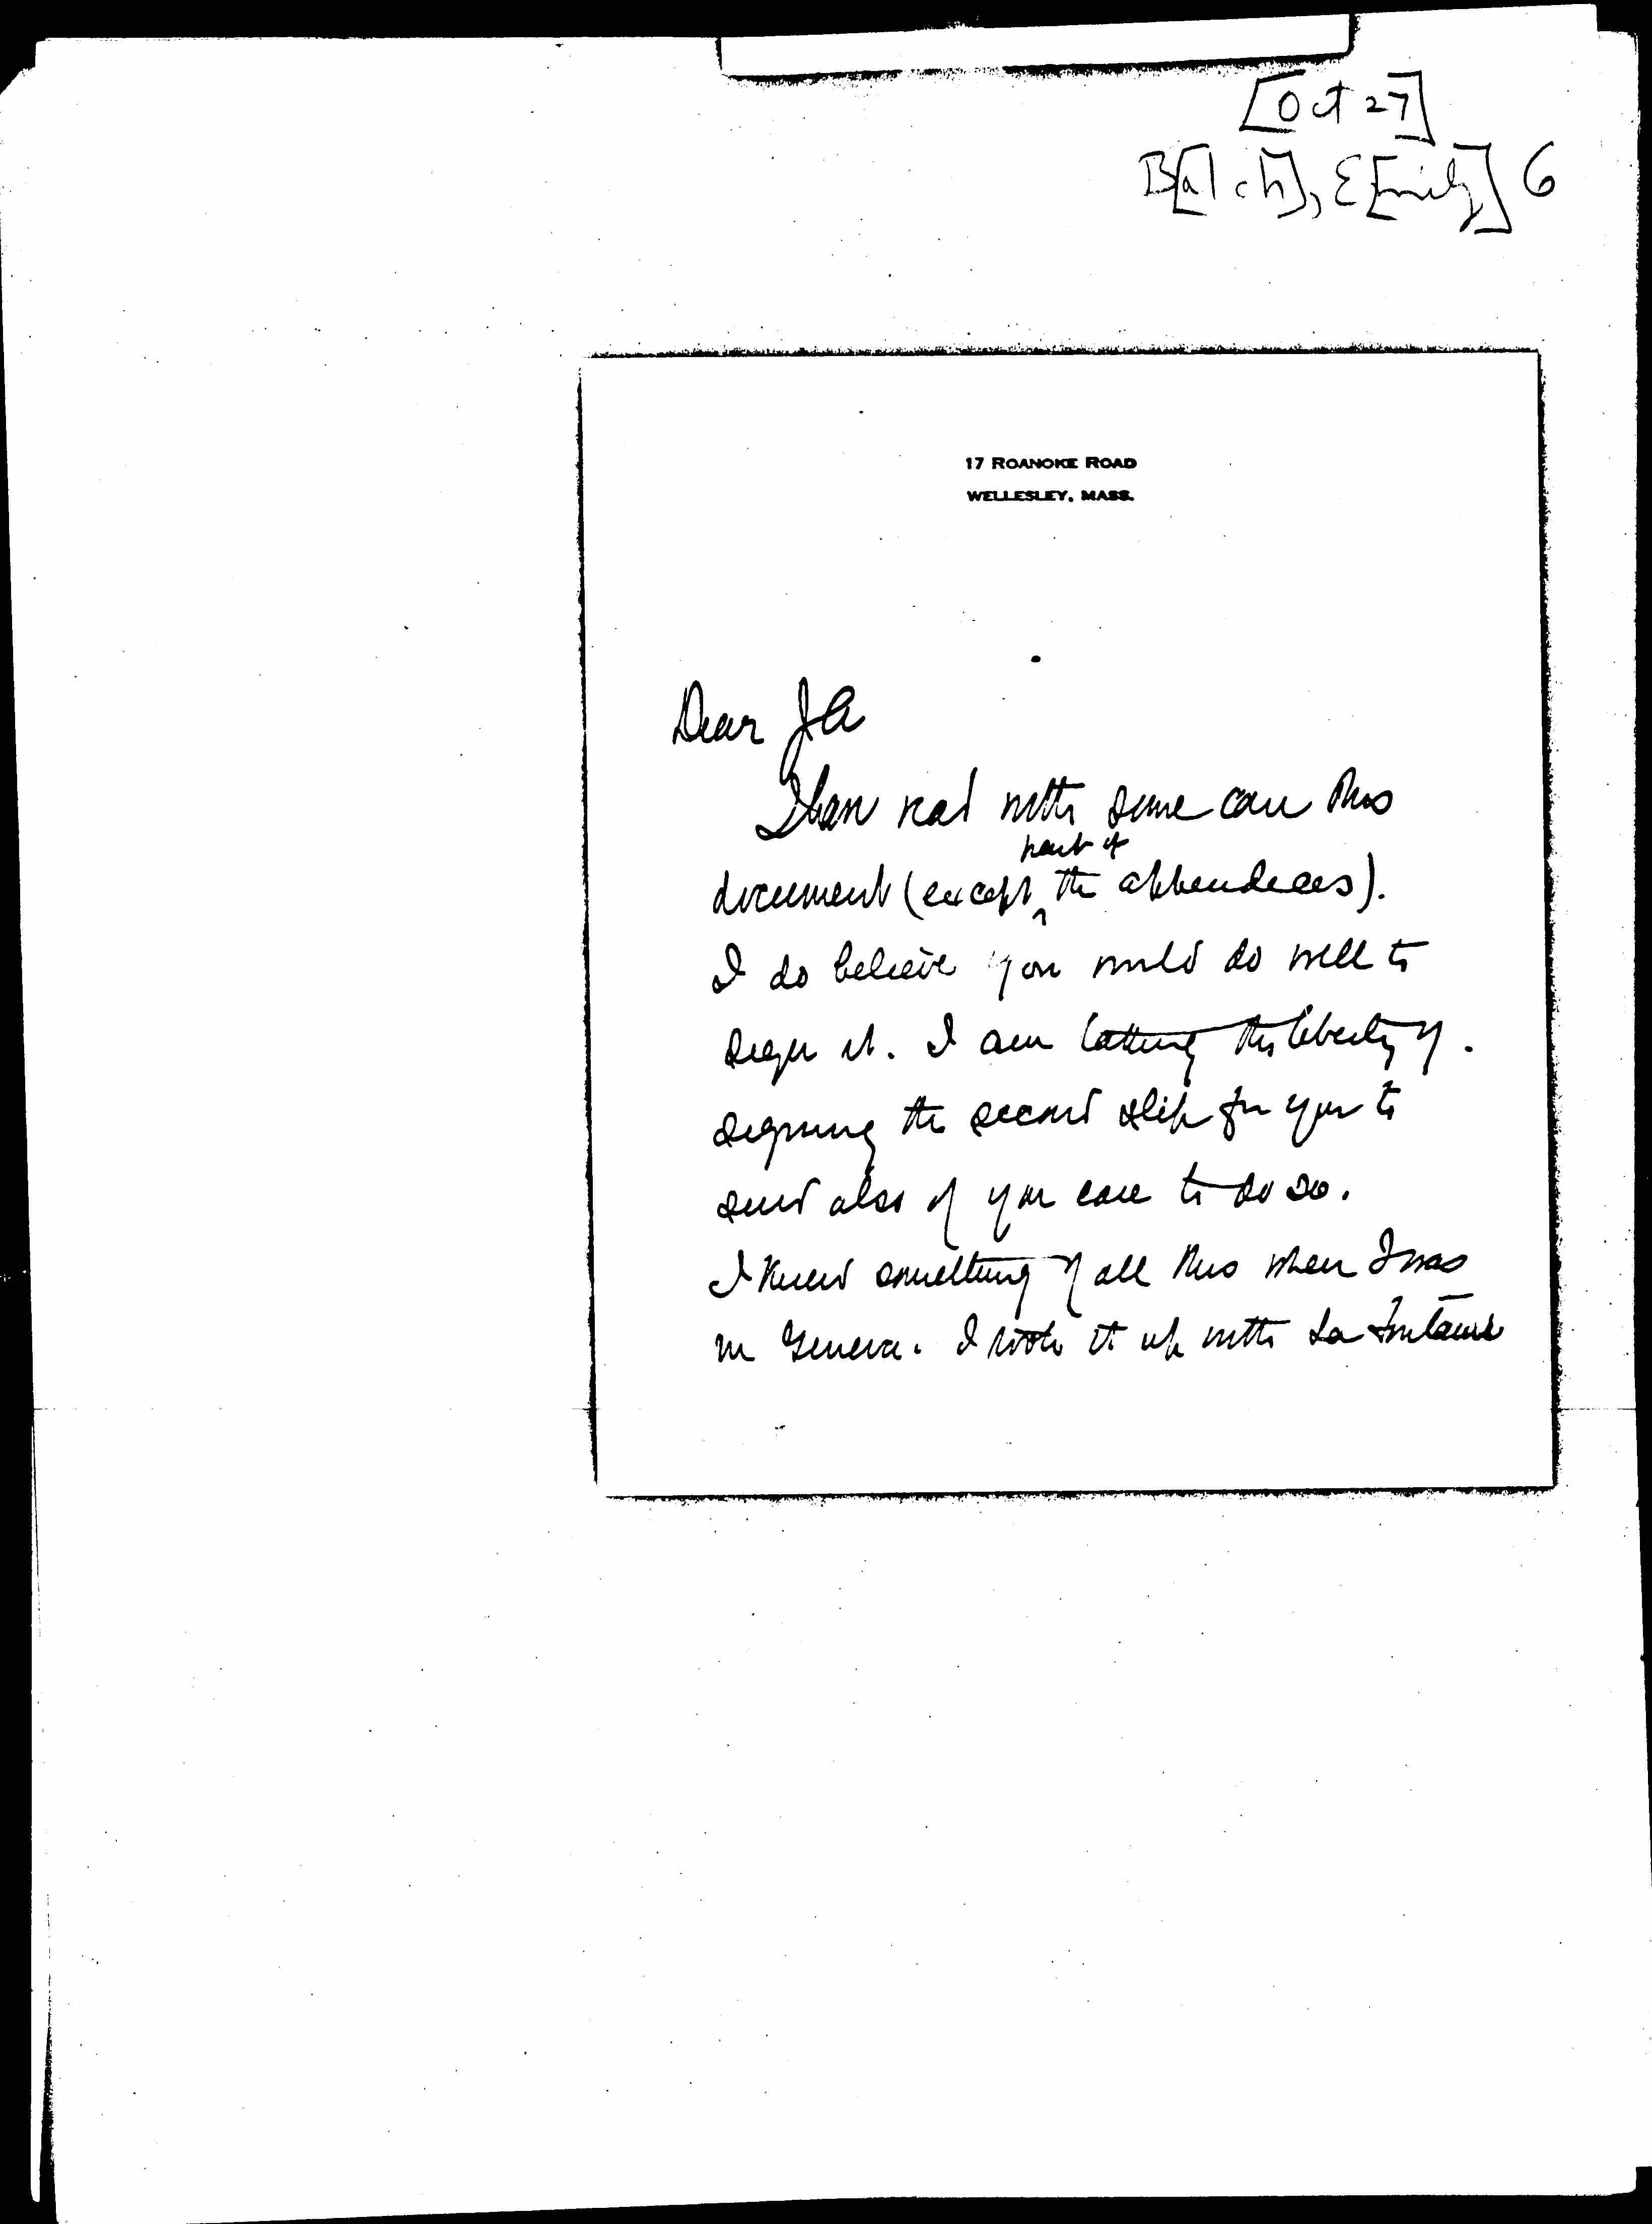 [Oct 27]
B[alch], E[mily] G
17 ROANOKE ROAD
WELLESLEY, MASS.
Dear JA
I have read with some care this
part of
document (except ^ the appendices).
I do believe you would do well to
sign it. I am taking the liberty of
signing the second slip for you to
send also if you care to do so.
I knew something of all this when I was
in Geneva. I took it up with La Fontaine